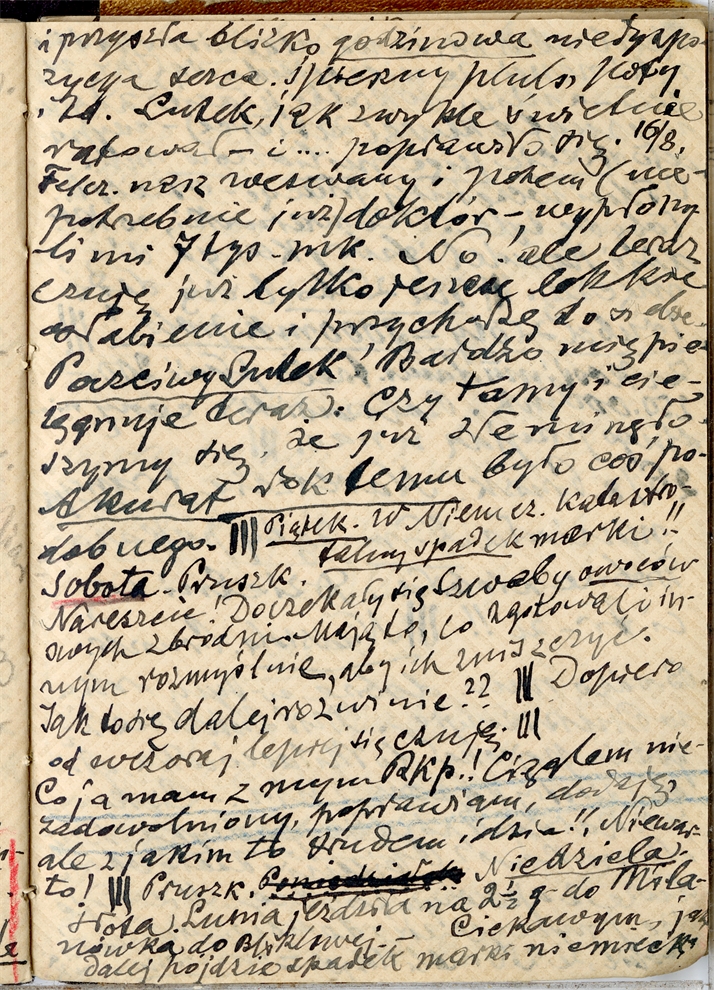 i przyszła blizko godzinowa niedyspo-
zycja serca. Śpieszny puls, poty
i td. Lutek, jak zwykle świetnie
ratował – i .... poprawiło się. 16/8.
Felcz. nasz wezwany i potem (nie-
potrzebnie już) doktór – wypłony-
li mi 7 tys. mk. No! ale teraz
czuję już tylko jeszcze lekkie
osłabienie i przychodzę do s
Poczciwy Lutek! Bardzo mię pie-
lęgnuje teraz. Czytamy i cie-
szymy się, że już złe minęło.
Akurat rok temu było coś po-
dobnego. ||| Piątek. W Niemcz. katastro-
falny spadek marki!!
Sobota. Pruszk.
Nareszcie! Doczekały się Szwaby owoców
swych zbrodni. Mają to, co zgotowali in-
nym rozmyślnie, aby ich zniszczyć.
Jak to się dalej rozwinie?? ||| Dopiero
od wczoraj lepiej się czuję. |||
Co ja mam z mym Rkp.! Ciągle m nie-
zadowolniony, poprawiam, dodaję,
ale z jakim to trudem idzie!! Niewar-
to! ||| Pruszk. Niedziela.
Lunia jeździła na 2½ g. do Mila-
nówka do Bliklowej. – Ciekawym, jak
dalej pójdzie spadek marki niemieck.